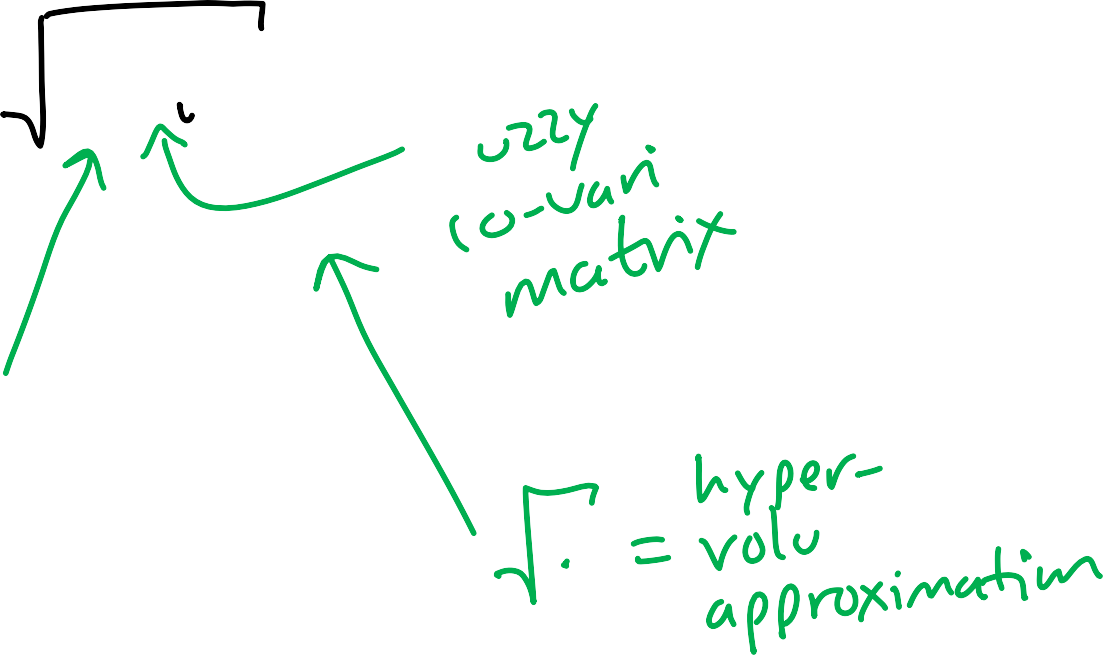 √ u
uzzy
co-vari
matrix
√. = hyper-
volu
approximation